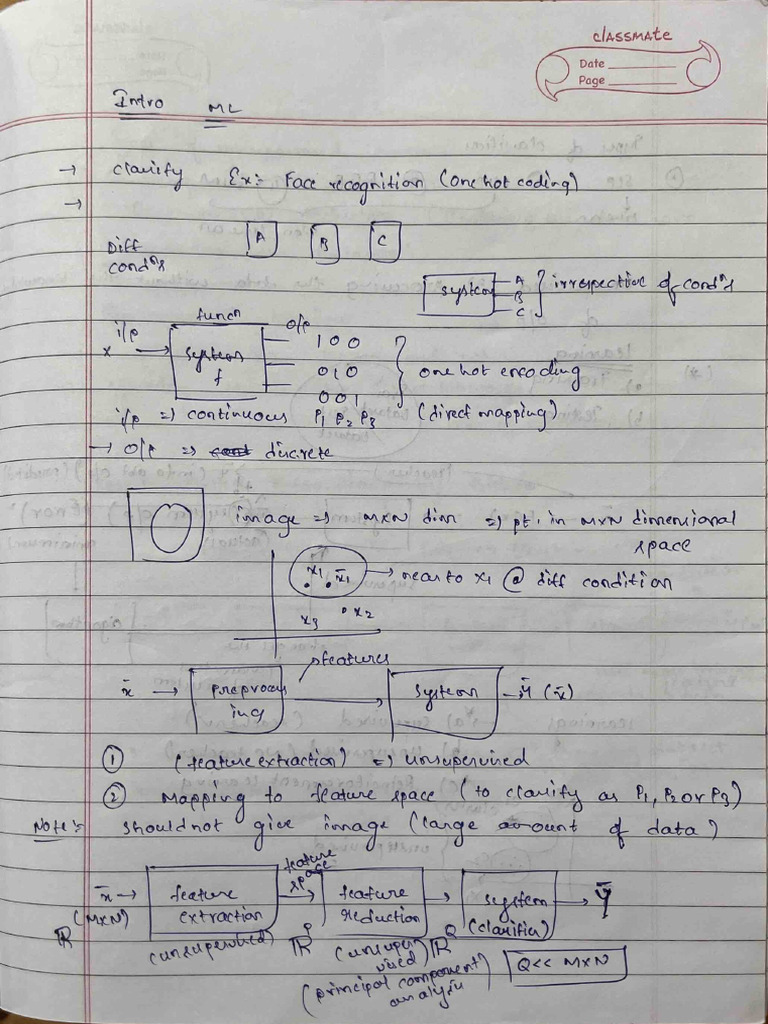 classmate
Date
Page
Intro ML
→ clarify Ex:- Face recognition (one hot coding)
→
A B C
Diff condns
system A B C } irrespective of condns
funcn
i/p o/p
x → system f
1 0 0
0 1 0
0 0 1
} one hot encoding
i/p => continuous P1 P2 P3 (direct mapping)
→ o/p => discrete
image => MXN dim => pt. in MXN dimensional space
x1 x̄1 → near to x1 @ diff condition
x3 x2
features
x̄ → preprocessing → system - ȳ (x̄)
① (feature extraction) => unsupervised
② mapping to feature space (to clarify as P1, P2 or P3)
Note:- should not give image (large amount of data)
feature space
x̄ → feature extraction → feature reduction → system (clarifier) → ȳ
ℝ(MXN) (unsupervised) ℝP (unsupervised) ℝQ
(principal component analysis)
Q<< MXN